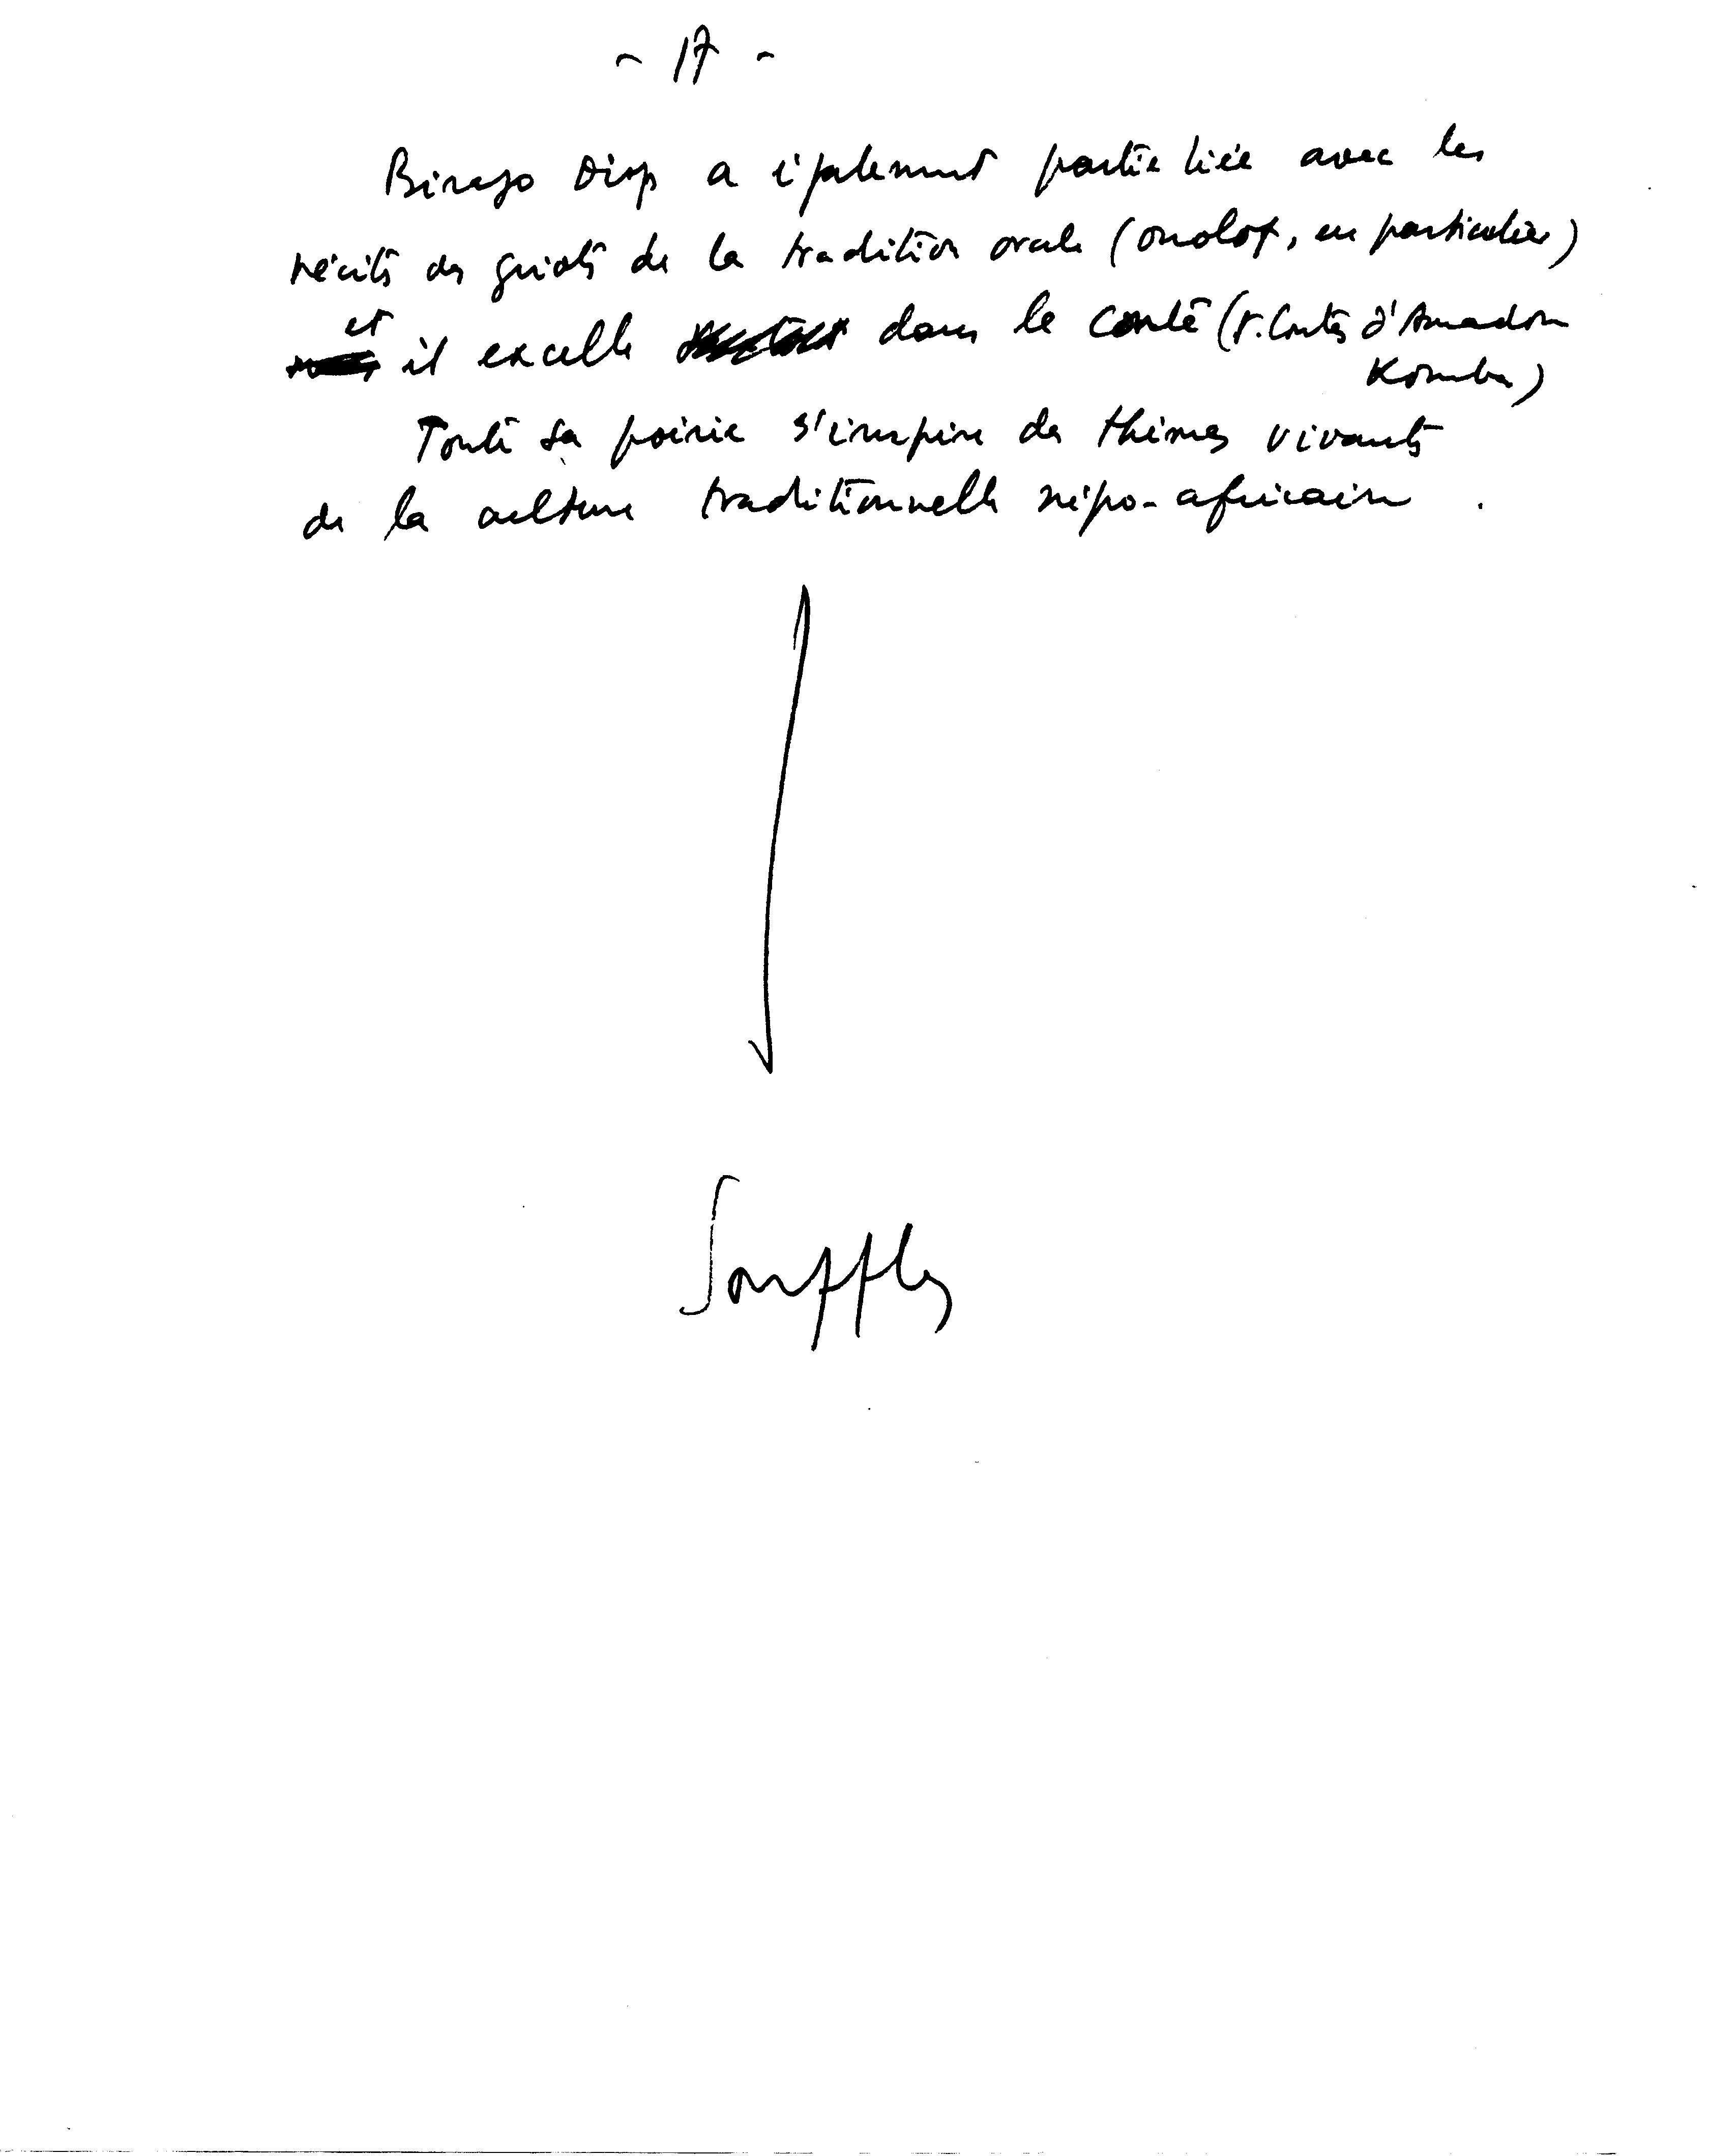 - 17 -
Birago Diop a également partie liée avec les
récits des griots de la tradition orale (ouolof, en particulier)
et il excelle dans le conte (V. Contes d'Amadou
Koumba)
Toute sa poésie s'inspire des thèmes vivants
de la culture traditionnelle négro-africaine.
Souffles